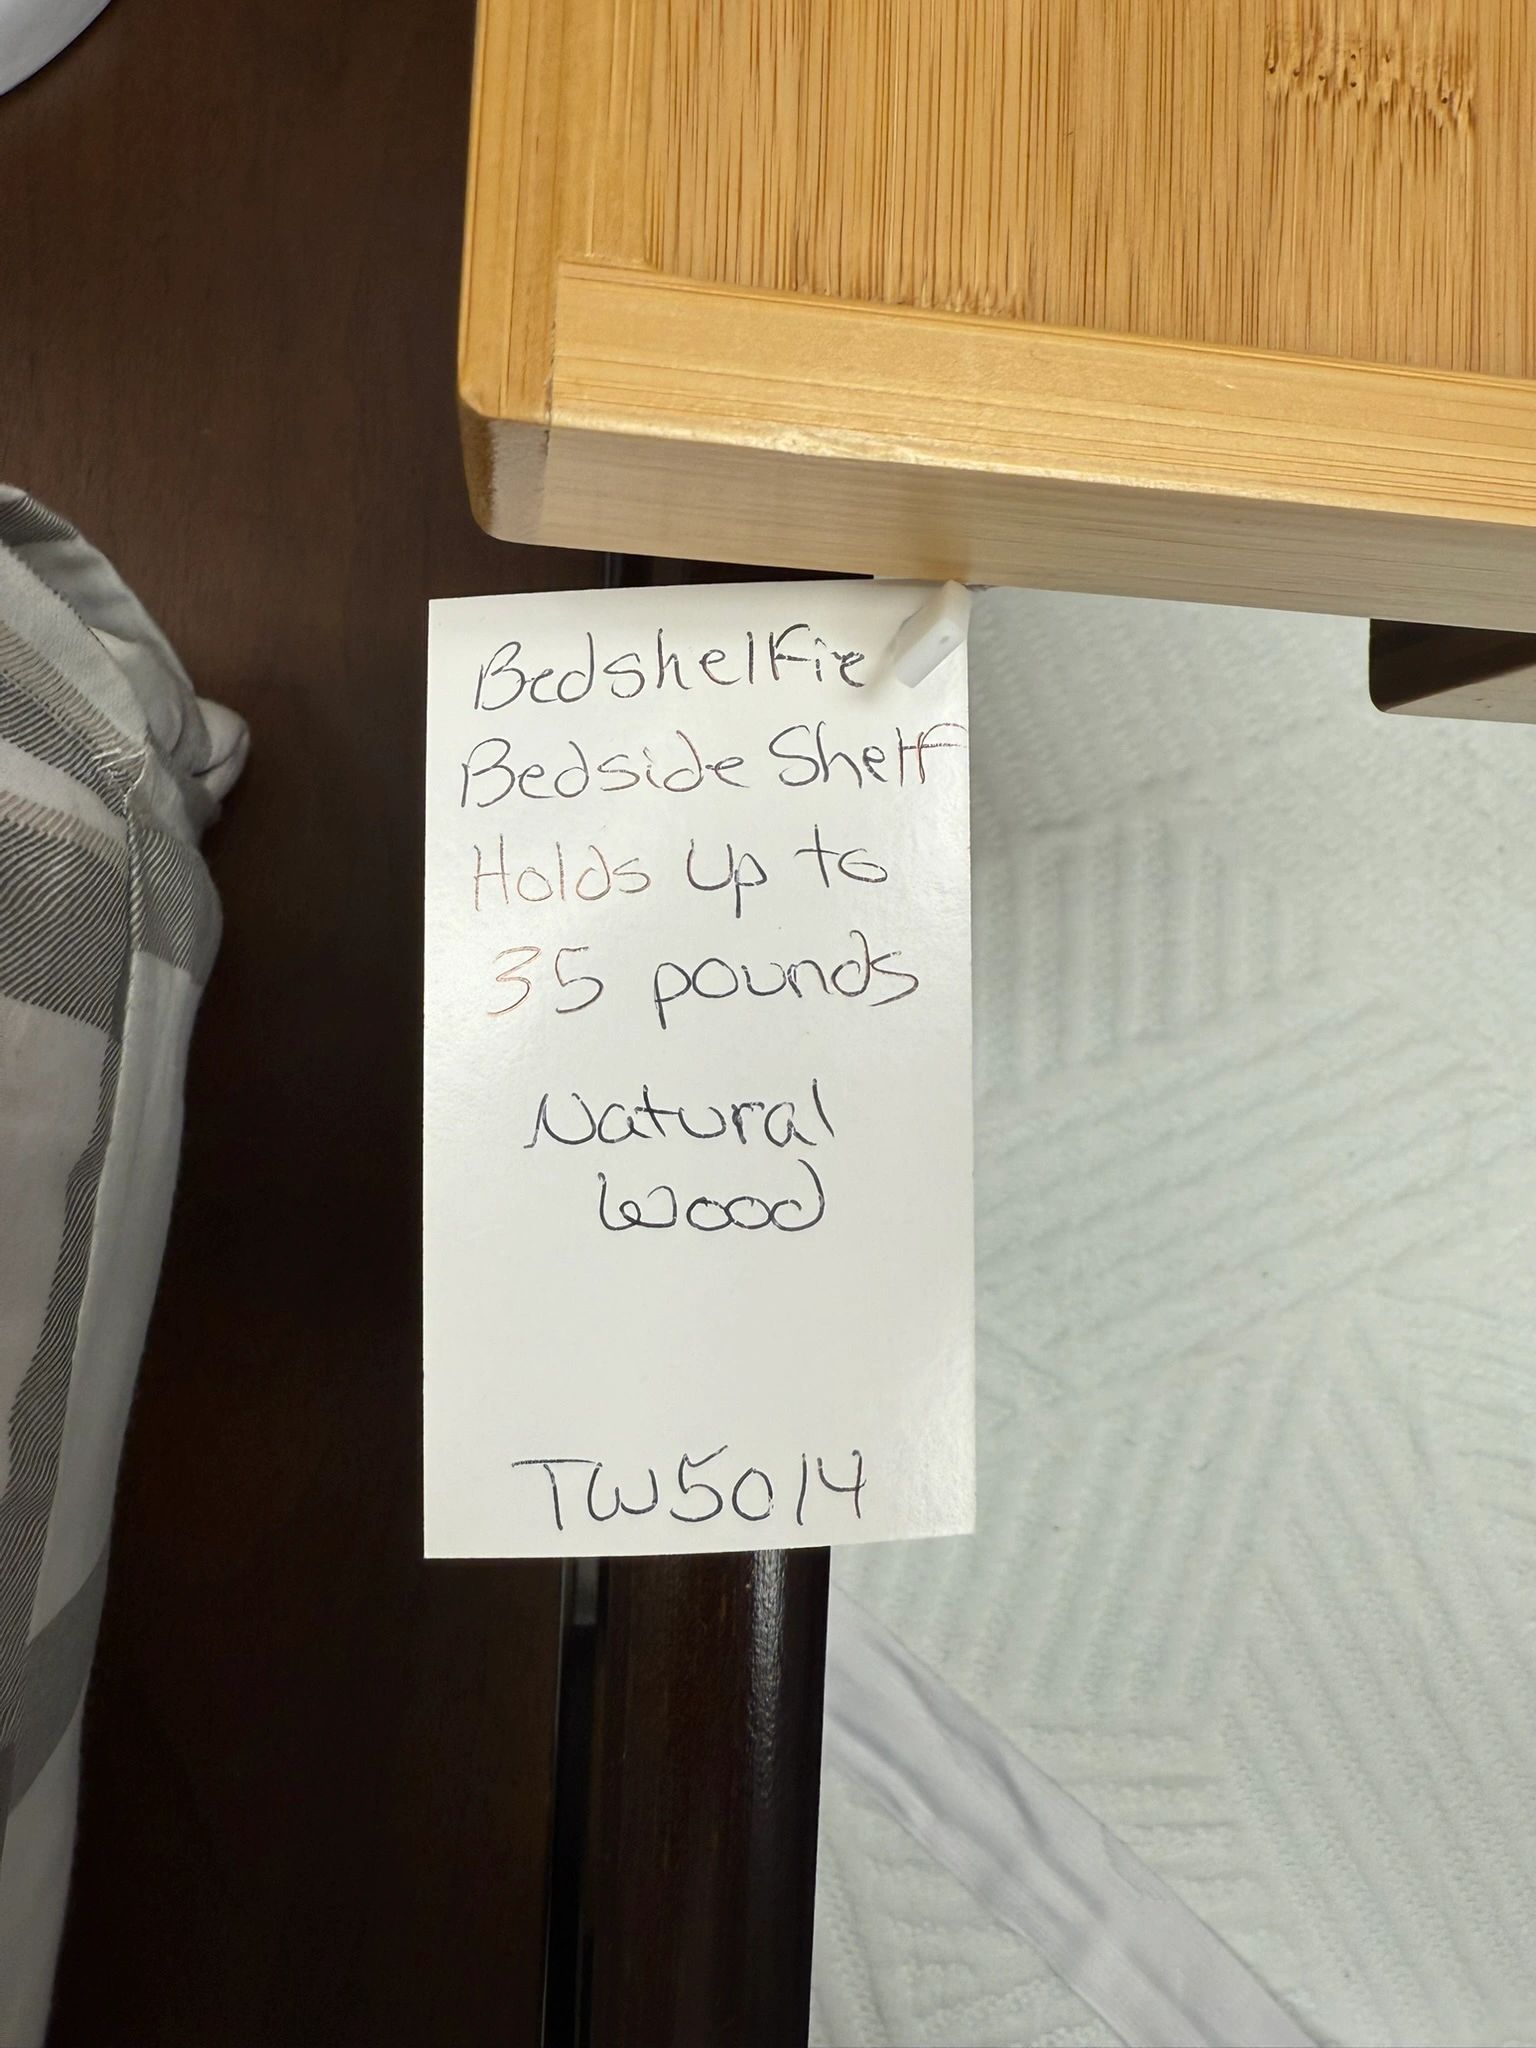 Bedshelfie
Bedside Shelf
Holds Up to
35 pounds
Natural
Wood
TW5014